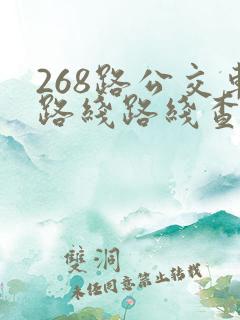 268路公交車
路线路线查
雙洞
未经同意禁止转载